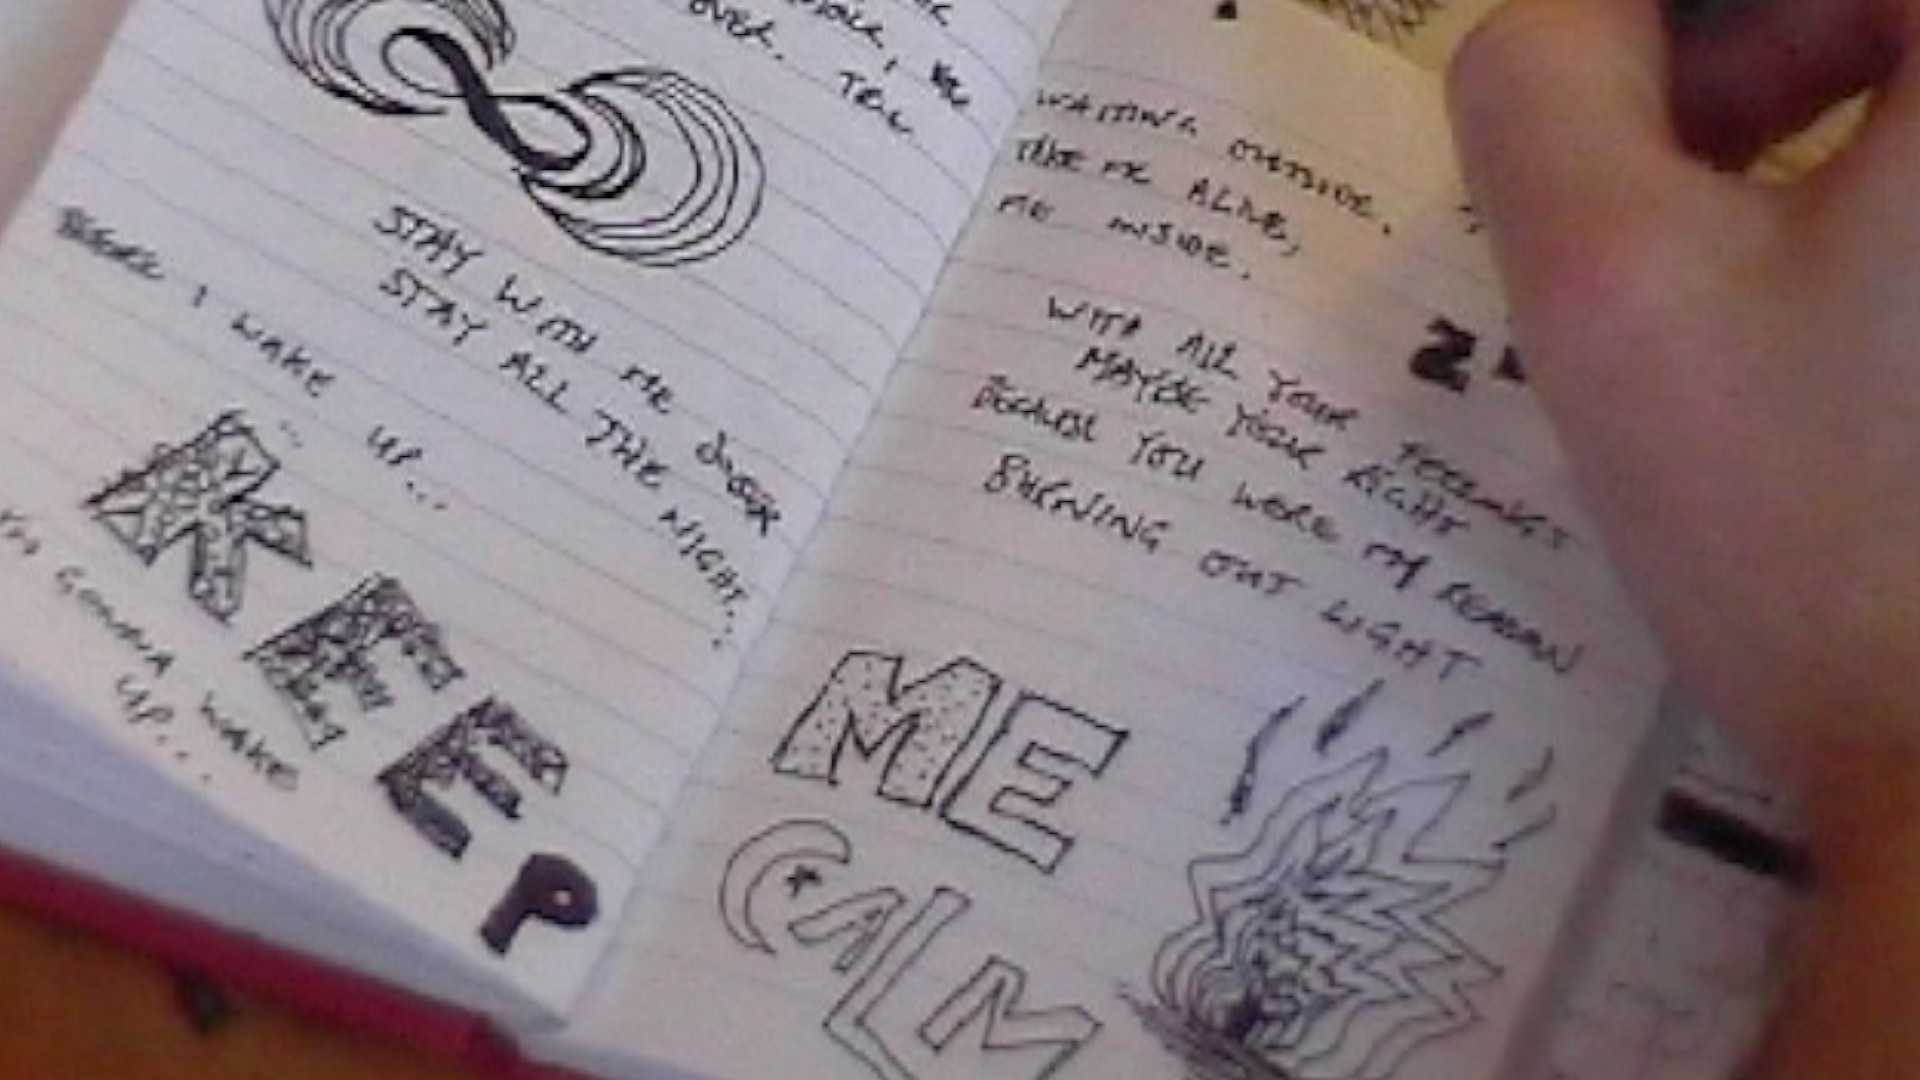 OVER. TELL
STAY WITH ME
STAY ALL THE NIGHT...
BEFORE I WAKE UP...
KEEP
I'M GONNA WAKE
UP...
WAITING OUTSIDE.
TAKE ME ALIVE,
ME INSIDE.
2
WITH ALL YOUR FEELINGS
MAYBE YOUR RIGHT
BECAUSE YOU WERE MY REASON
BURNING OUT LIGHT
ME
CALM